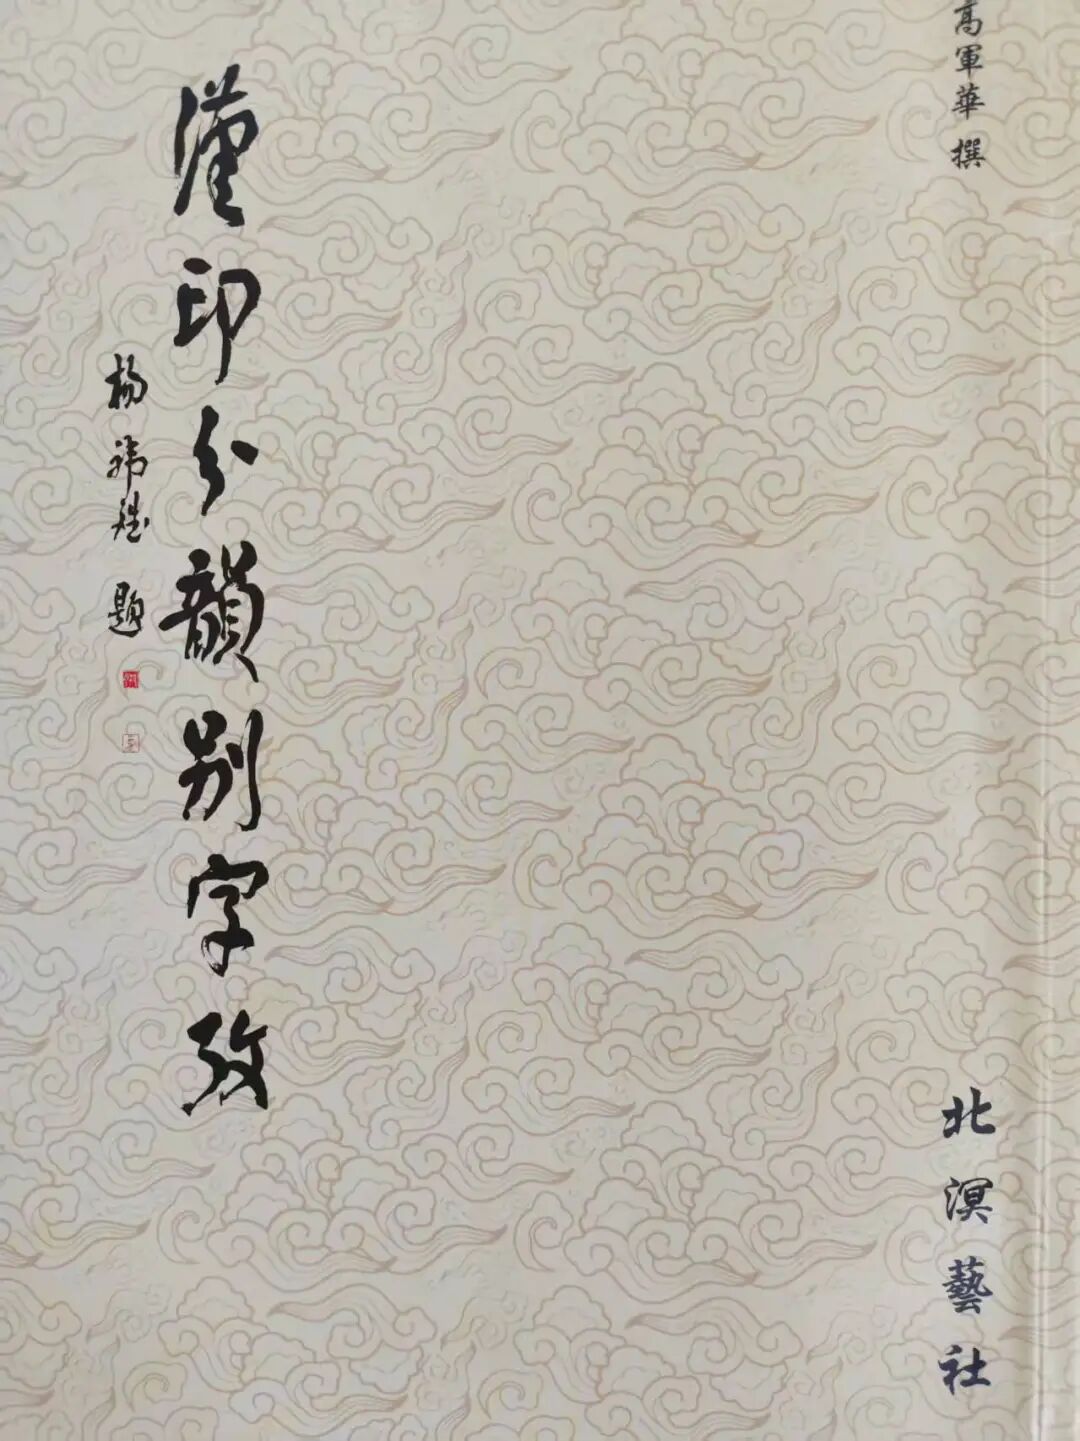 高軍華 撰
北溟藝社
漢印分韻别字攷
楊 題